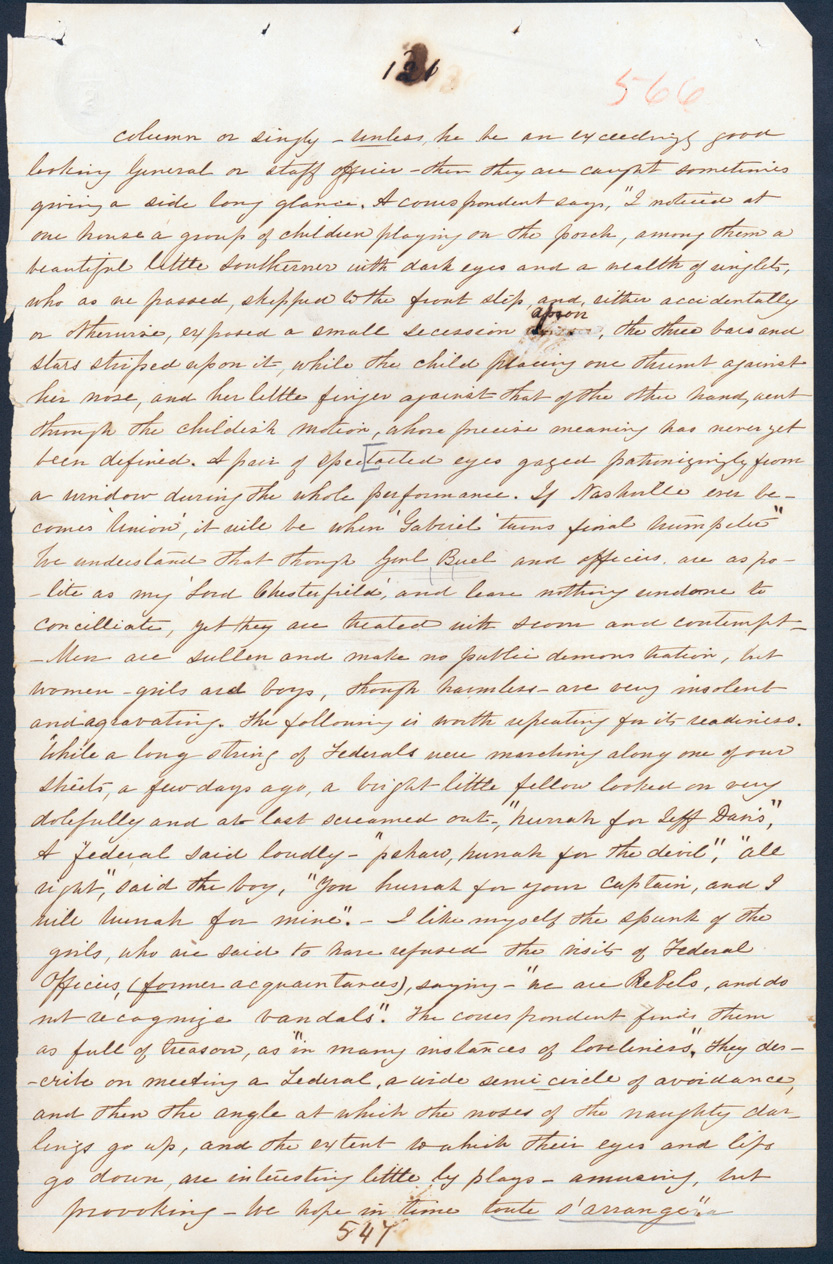 121
566
column or singly - unless, he be an exceedingly good
looking General or staff officer - then they are caught sometimes
giving a side long glance. A correspondent says, "I noticed at
one house a group of children playing on the porch, among them a
beautiful little southerner with dark eyes and a wealth of ringlets,
who as we passed, skipped to the front step, and, either accidentally
apron
or otherwise, exposed a small secession , the three bars and
stars striped upon it, while the child placing one thumb against
her nose, and her little finger against that of the other hand, went
through the childish motion, whose precise meaning has never yet
been defined. A pair of spec[tacted eyes gazed patronizingly from
a window during the whole performance. If Nashville ever be-
comes 'Union', it will be when 'Gabriel' turns final trumpeter"
We understand that though Genl Buel and officers are as po-
-lite as my 'Lord Chesterfield', and leave nothing undone to
concilliate, yet they are treated with scorn and contempt -
- Men are sullen and make no public demonstration, but
women - girls and boys, though harmless - are very insolent
and agravating. The following is worth repeating for its readiness.
"While a long string of Federals were marching along one of our
streets, a few days ago, a bright little fellow looked on very
dolefully and at last screamed out -, "hurrah for Jeff Davis",
A Federal said loudly - "pshaw, hurrah for the devil", "all
right", said the boy, "You hurrah for your Captain, and I
will hurrah for mine". - I like myself the spunk of the
girls, who are said to have refused the visits of Federal
Officers, (former acquaintances), saying - "we are Rebels, and do
not recognize vandals". The correspondent finds them
as full of treason, as "in many instances of loveliness". They des-
-cribe on meeting a Federal, a wide semi circle of avoidance,
and then the angle at which the noses of the naughty dar-
lings go up, and the extent to which their eyes and lips
go down, are interesting little by plays - amusing, but
provoking - We hope in time toute s'arrange"
547